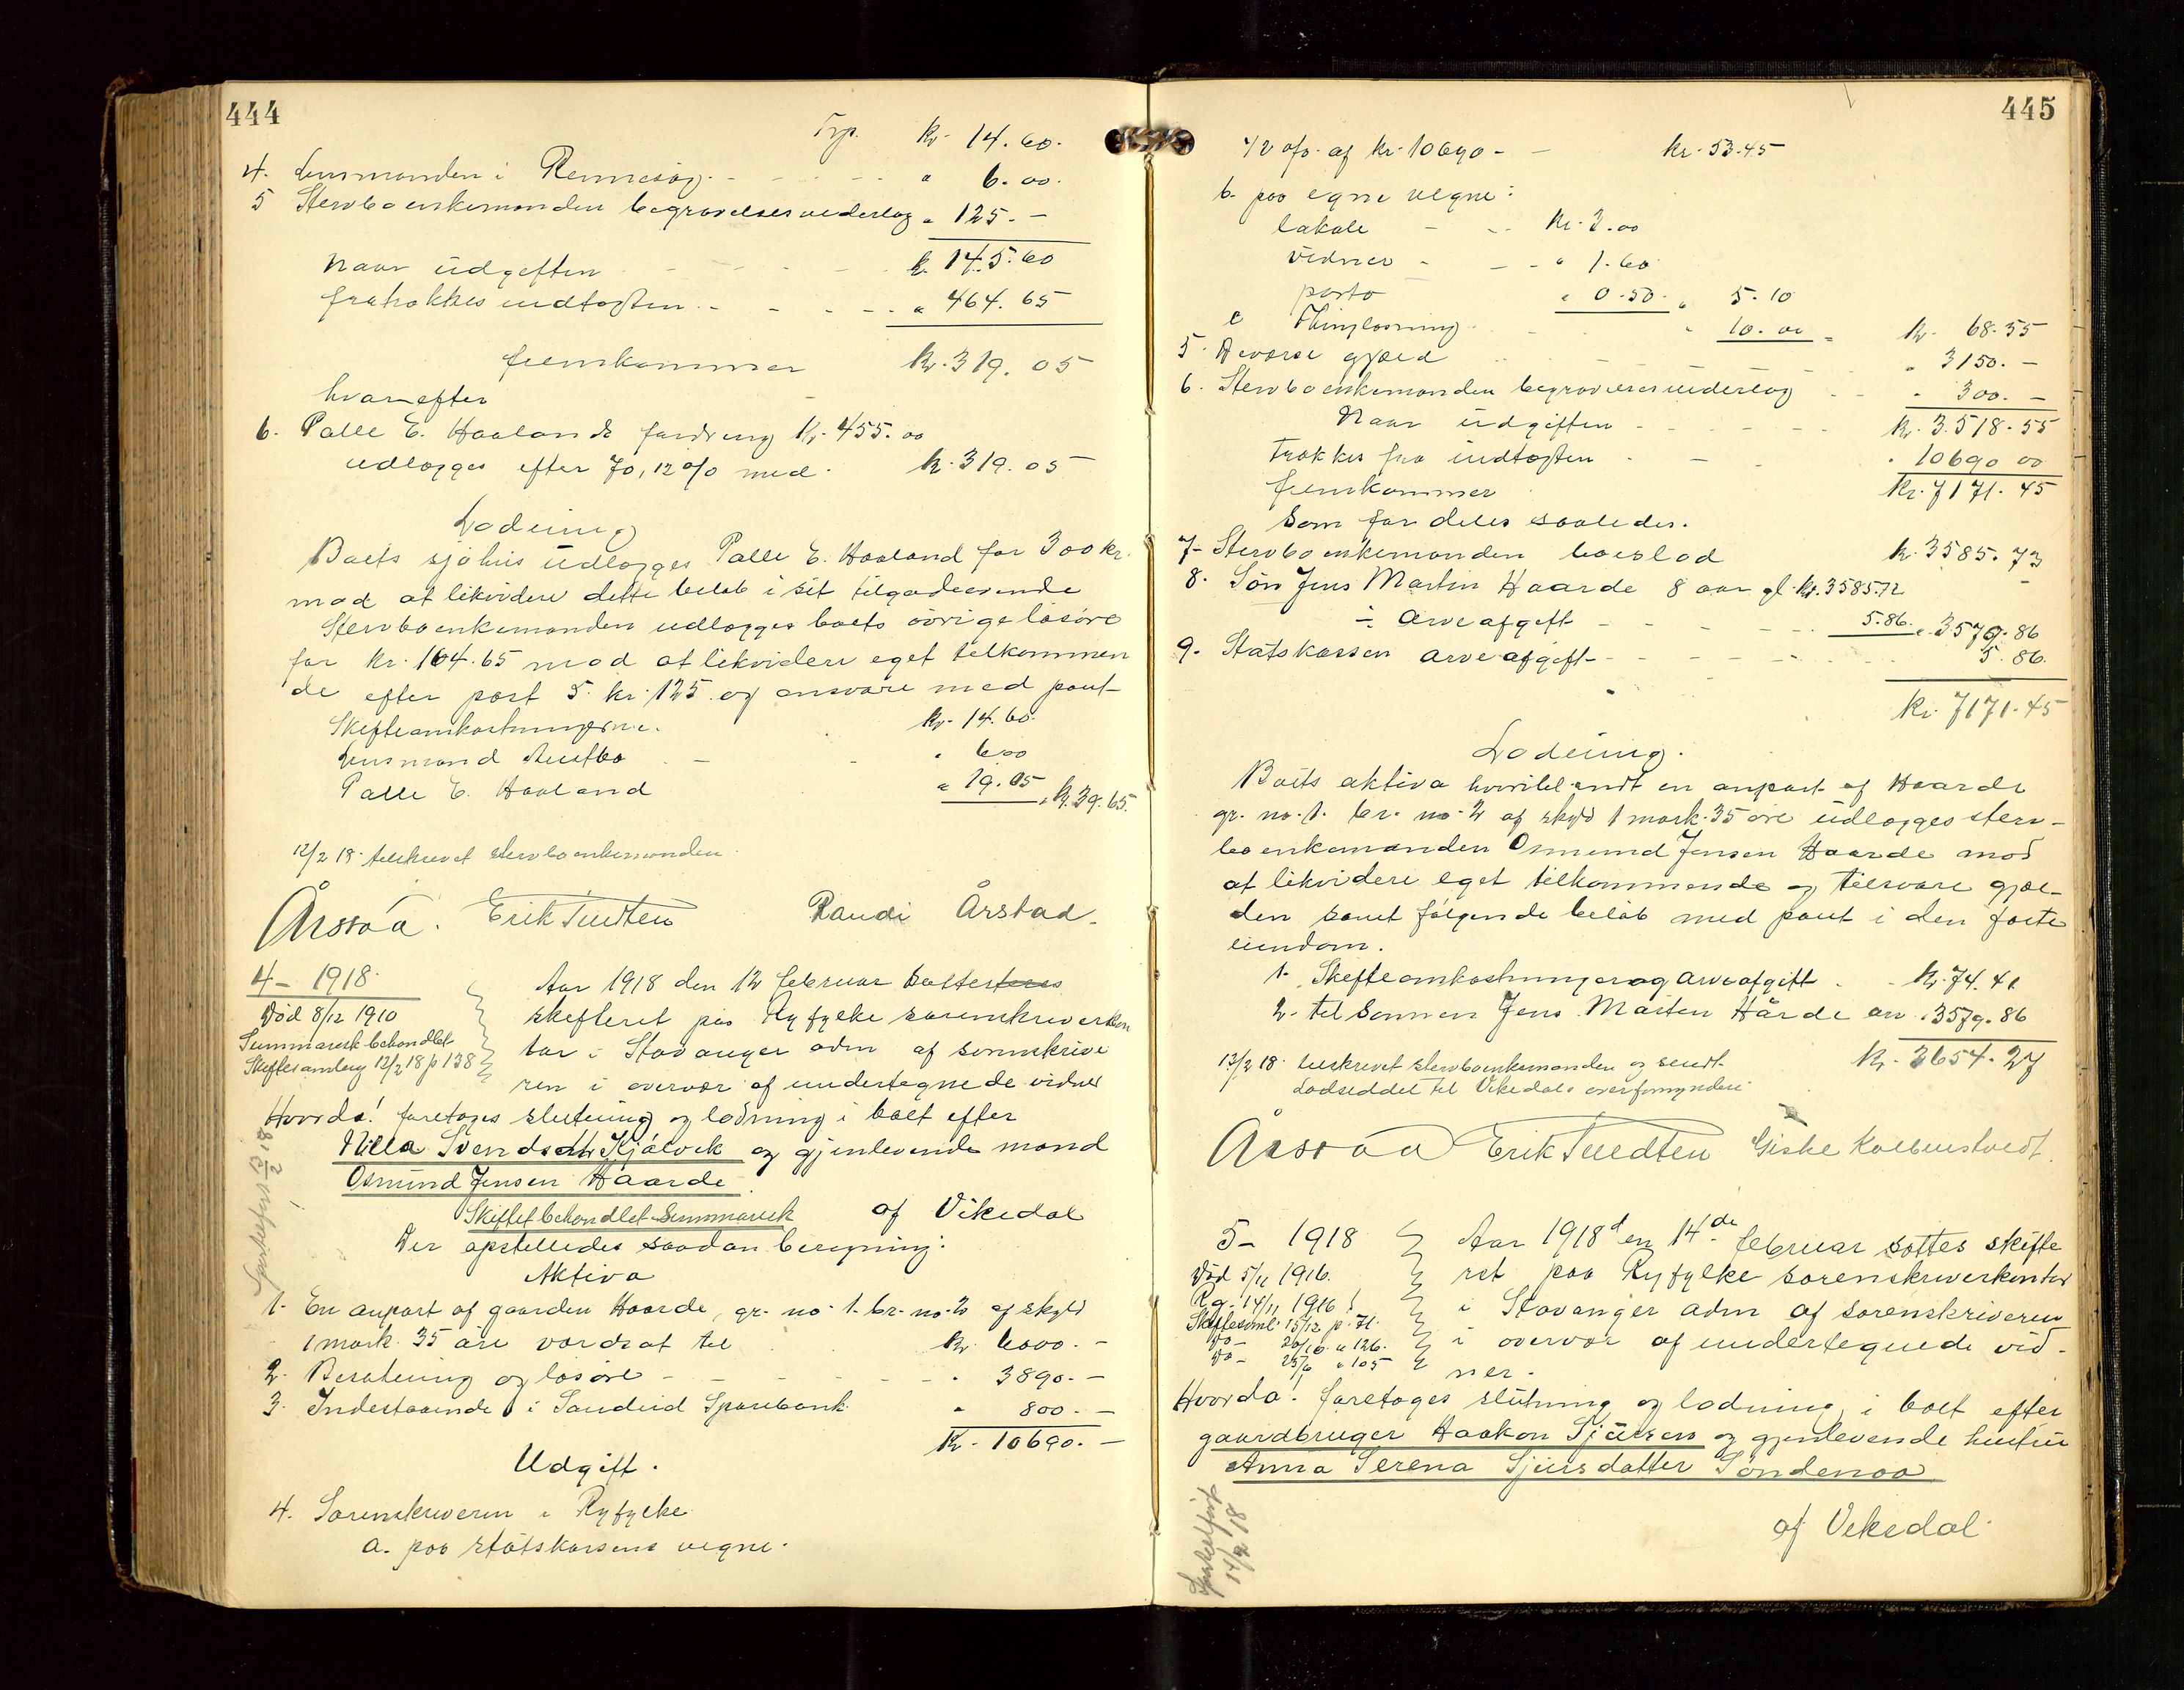 444
Trp. Kr. 14.60.
4. Lensmanden i Rennesøy. " 6.00.
5 Stervboenkemanden begravelsesvederlag " 125.-
Naar udgiften Kr. 145.60
fratrækkes indtægten " 464.65
fremkommer Kr. 319.05
hvorefter
6. Palle E. Haalands fordring Kr. 455.00
udlægges efter 70,12 o/o med. Kr. 319.05
Lodning
Boets sjøhus udlægges Palle E. Haaland for 300 kr.
mod at likvidere dette beløb i sit tilgodeavende
Stervboenkemanden udlægges boets øvrige løsøre
for kr. 164.65 mod at likvidere eget tilkommen
de efter post 5. kr. 125 og ansvare med pant
Skifteomkostningerne. Kr. 14.60.
Lensmand Austbø " 6.00
Palle E. Haaland " 19.05 " Kr. 39.65.
12/2 18. tilskrevet stervboenkemanden.
Årssåa. Erik Tuedten Randi Årstad.
4- 1918.
Død 8/12 1910
Summarisk behandlet
Skiftesamling 12/2 18 p 138
Aar 1918 den 12 februar sattes
skifteret paa Ryfylke sorenskriverkon
tor i Stavanger adm af sorenskrive
ren i overvær af undertegnede vidner
Hvorda! foretoges slutning og lodning i boet efter
Nilla Svendsdtr Kjølvik og gjenlevende mand
Osmund Jensen Haarde
Skiftet behandlet summarisk af Vikedal
Der opstilledes saadan beregning:
Aktiva
1. En anpart af gaarden Haarde, gr. no. 1. br. no. 2 af skyld
1 mark 35 øre værdsat til Kr. 6000.-
2. Besætning og løsøre " 3890.-
3. Indestaaende i Sandeid Sparebank " 800.-
Kr. 10690.-
Udgift.
4. Sorenskriveren i Ryfylke
a. paa statskassens vegne.
445
1/2 o/o af kr. 10690 - kr. 53.45
b. paa egne vegne:
lokale kr. 3.00
vidner " 1.60
porto " 0.50. " 5.10
c Thinglæsning " 10.00 = Kr. 68.55
5. Diverse gjæld " 3150.-
6. Stervboenkemanden begravelsesvederlag " 300.-
Naar udgiften Kr. 3.518.55
trækkes fra indtægten " 10690 00
fremkommer Kr. 7171.45
Som fordeles saaledes.
7- Stervboenkemanden boeslod Kr. 3585.73
8. Søn Jens Martin Haarde 8 aar gl. Kr. 3585.72
÷ Arveafgift 5.86. " 3579.86
9. Statskassen arveafgift 5.86.
Kr. 7171.45
Lodning.
Boets aktiva hvoriblandt en anpart af Haarde
gr. no. 1. br. no. 2 af skyld 1 mark 35 øre udlægges sterv-
boenkemanden Osmund Jensen Haarde mod
at likvidere eget tilkommende og tilsvare gjæl-
den samt følgende beløb med pant i den faste
eiendom.
1. Skifteomkostninger og arveafgift Kr. 74.41
2. til sønnen Jens Martin Hårde arv " 3579.86
Kr. 3654.27
13/2 18. tilskrevet stervboenkemanden og sendt
lodseddel til Vikedals overformynderi.
Årssåa Erik Tuedten Giske Kolbenstvedt.
5- 1918
Død 5/11 1916.
Rg. 14/11 1916!
Skiftesaml 15/12 p. 71.
Do - 20/10 " 126.
Do - 25/6 " 105
Aar 1918 den 14de februar sattes skifte
ret paa Ryfylke sorenskriverkontor
i Stavanger adm af sorenskriveren
i overvær af undertegnede vid-
ner.
Hvorda! foretoges slutning og lodning i boet efter
gaardbruger Haakon Sjursen og gjenlevende hustru
Anna Serena Sjursdatter Søndenaa
af Vikedal.